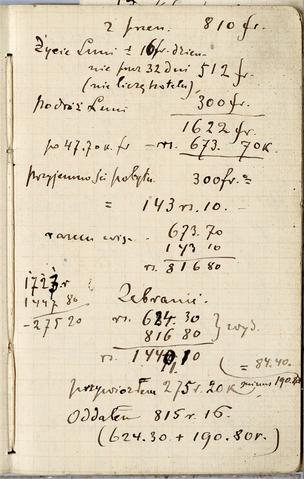 2 przen. 810 fr.
Życie Luni à 16 fr. dzien-
nie przez 32 dni 512 fr.
(nie licząc hotelu)
Podróż Luni 300 fr.
1622 fr.
po 47.70 k. fr — rs. 673. 70 k.
Przyjemności pobytu 300 fr. =
= 143 rs. 10. -
razem więc 673. 70
143 10
rs. 816 80
1723 r
1447 80
- 275 20
Zebranie.
rs. 624. 30
816 80 } wyd.
rs. 1440 10
= 84.40.
przywiozłem 275 r. 20 k
minus 190.80
Oddałem 815 r. 16.
(624.30 + 190.80 r.)